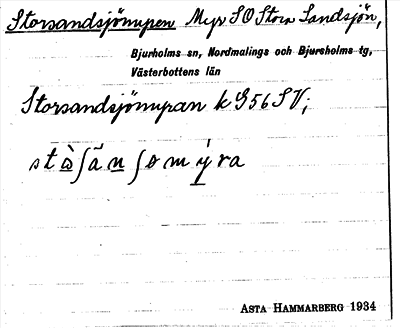 Storsandsjömyren Myr SO Stora Sandsjön,
Bjurholms sn, Nordmalings och Bjurholms tg,
Västerbottens län
Storsandsjömyran k G56 SV;
ASTA HAMMARBERG 1934